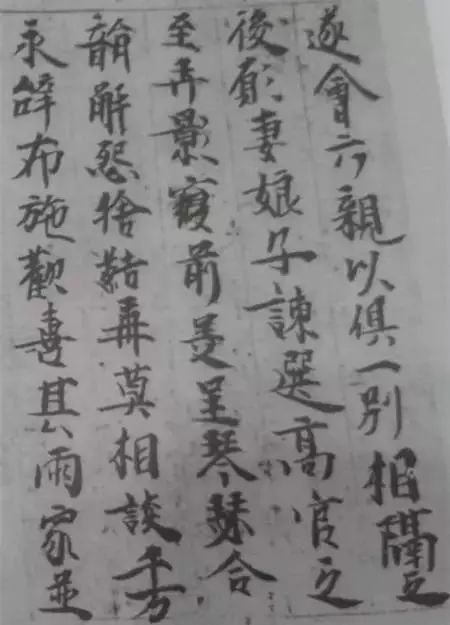 遂會六親以俱一別相隔之
後願妻娘子諫選高官之
至弄影前美呈琴瑟合
韻解怨捨莫相談千万
永辝布施歡喜其兩家並